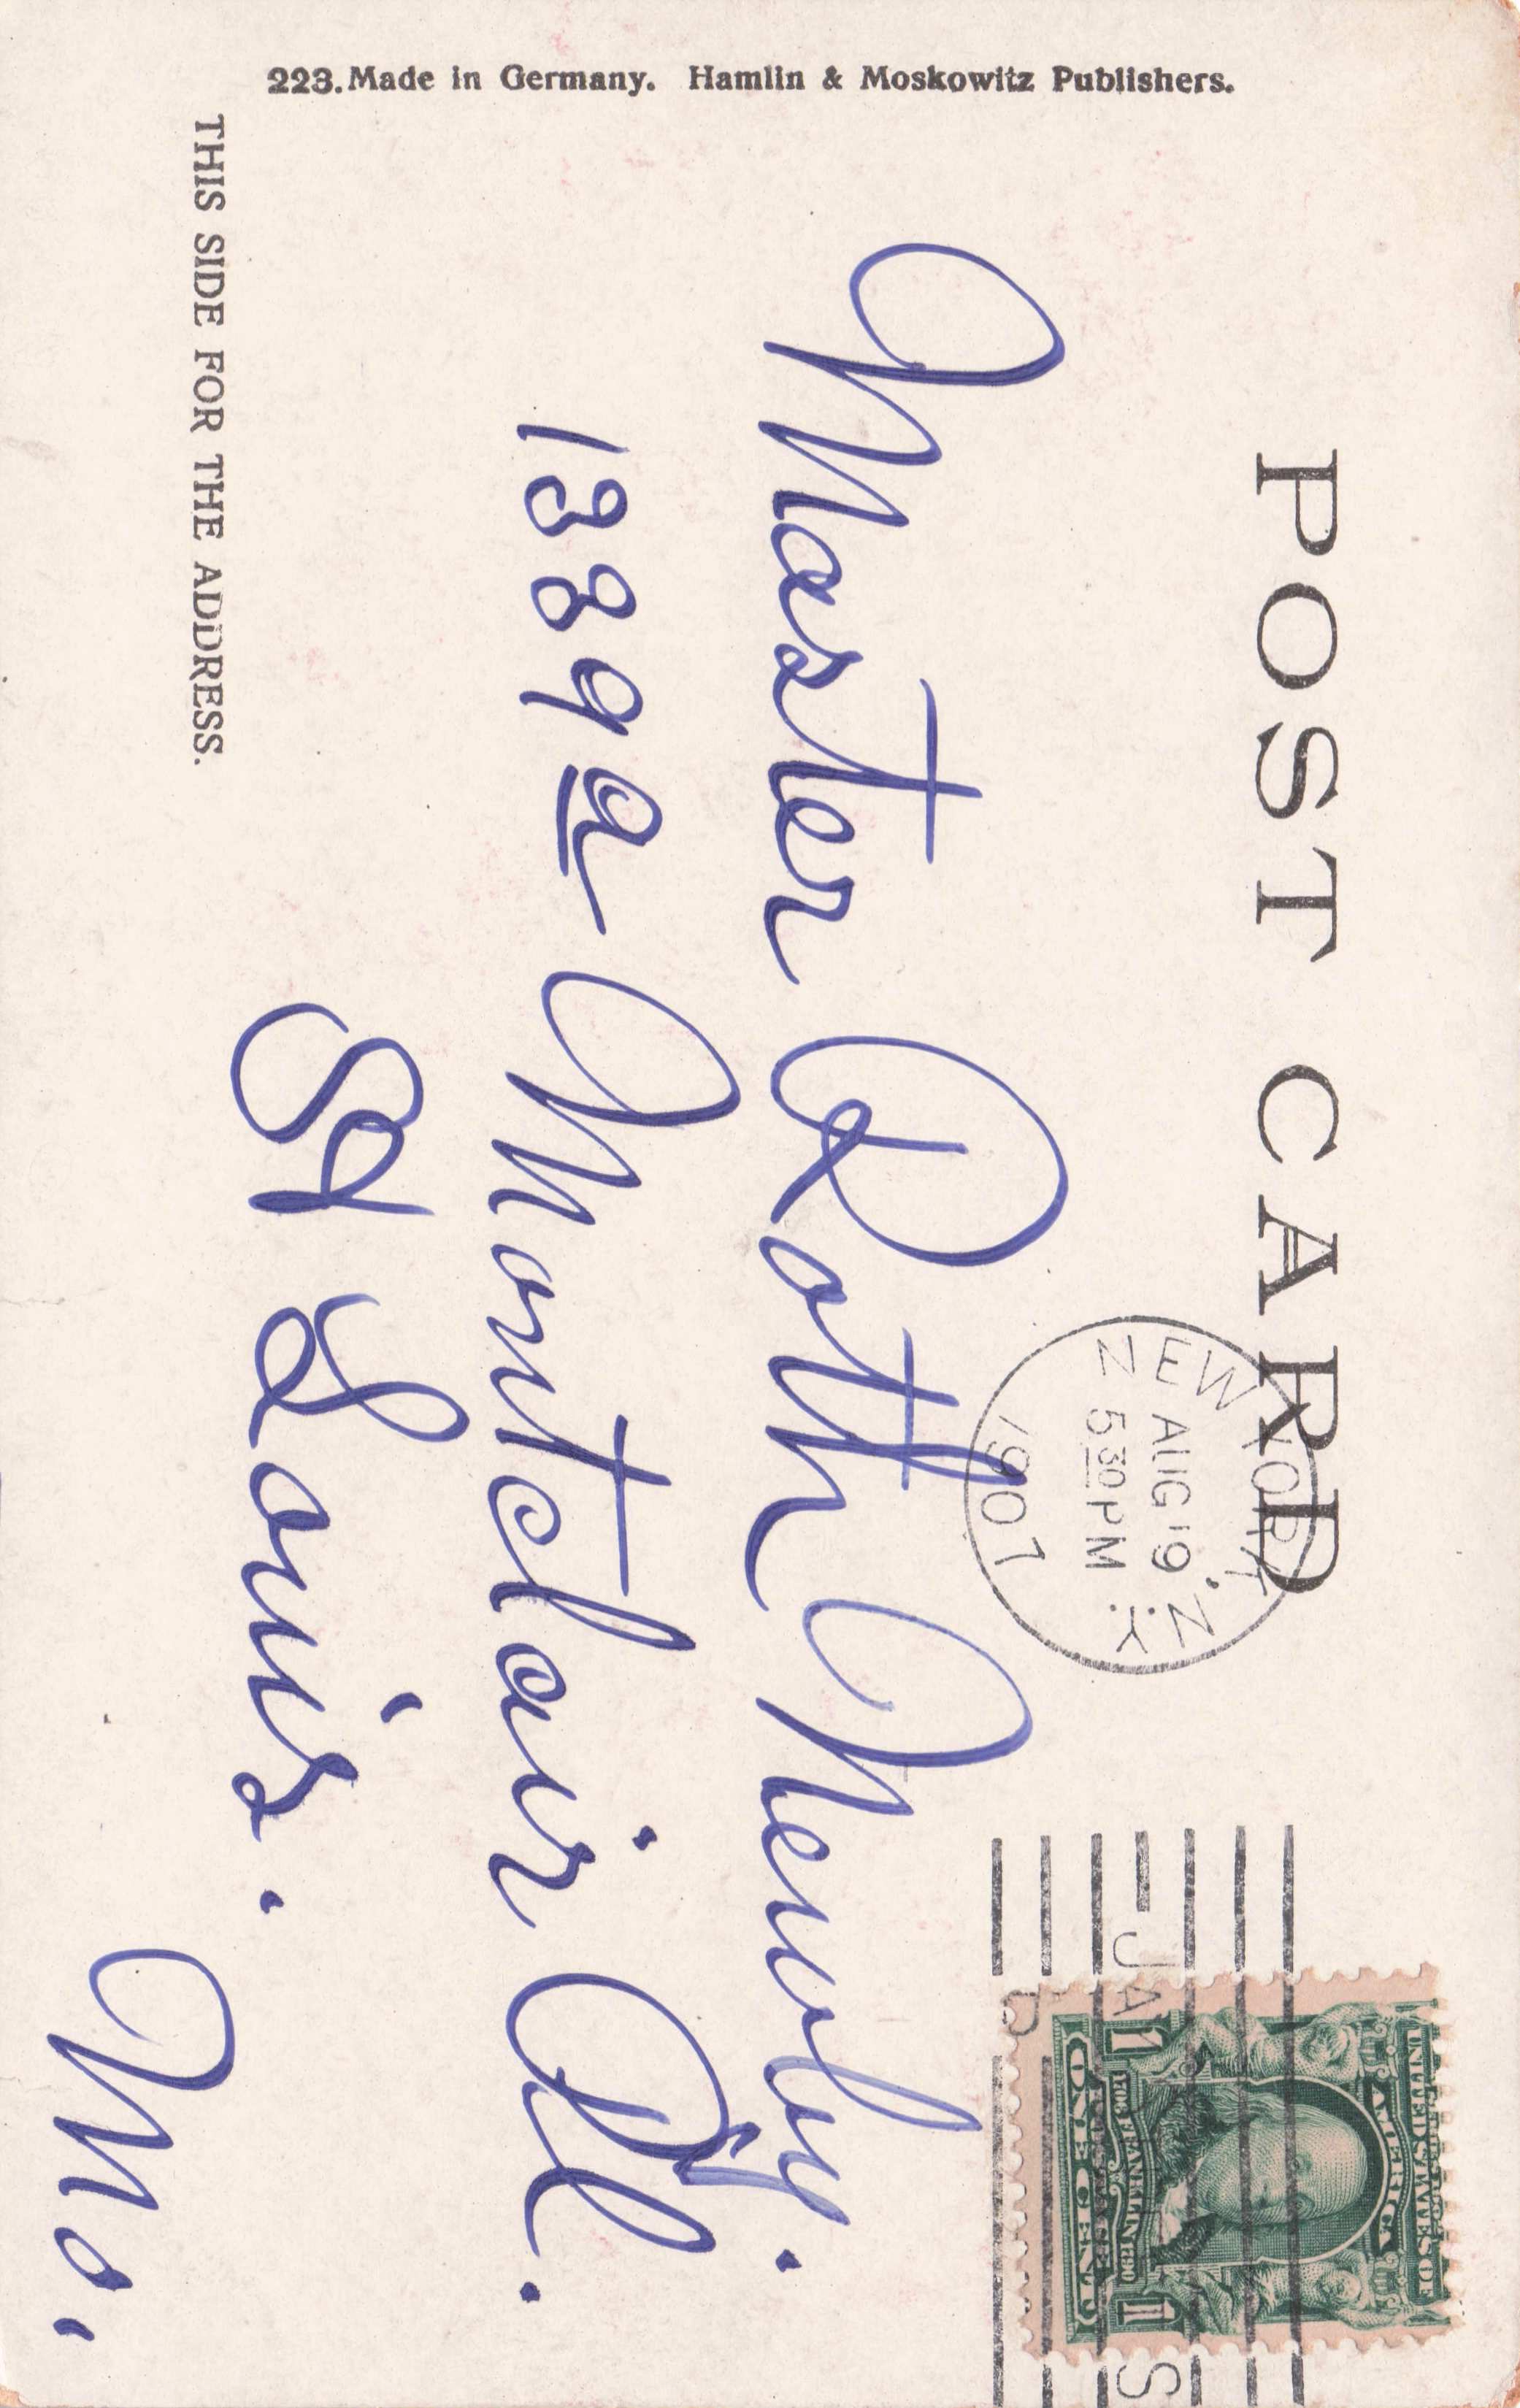 POST CARD
NEW YORK, N.Y.
AUG 19
5 30 PM
1907
UNITED STATES OF
AMERICA
FRANKLIN
1 ONE CENT 1
Master Roth Newby.
1389a Montclair Pl.
St Louis.
Mo.
THIS SIDE FOR THE ADDRESS.
223. Made in Germany. Hamlin & Moskowitz Publishers.